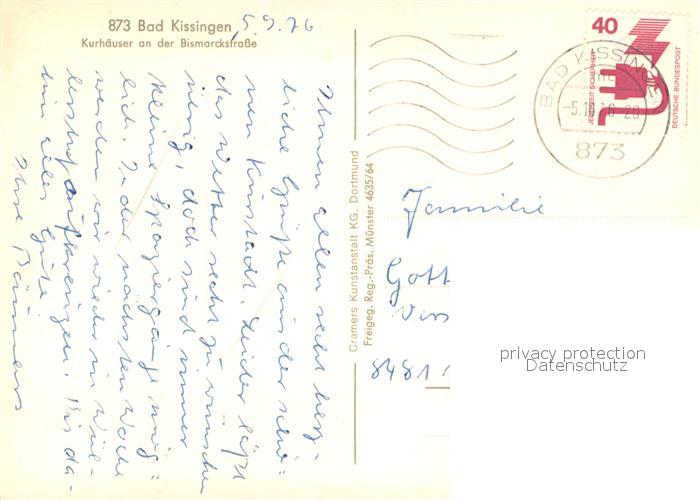 873 Bad Kissingen
Kurhäuser an der Bismarckstraße
5.9.76
Ihnen allen recht herz-
liche Grüße aus der schö-
nen Kurstadt. Leider läßt
das Wetter sehr zu wünschen
übrig, doch sind immer
kleine Spaziergänge mög-
lich. In der nächsten Woche
werden wir wieder in
aufkreuzen. Bis da-
hin alles Gute.
Ihre
Cramers Kunstanstalt KG. Dortmund
Freigeg. Reg.-Präs. Münster 4635/64
40
JEDERZEIT SICHERHEIT
DEUTSCHE BUNDESPOST
BAD KISSINGEN
873
Familie
Gott
8481
privacy protection
Datenschutz